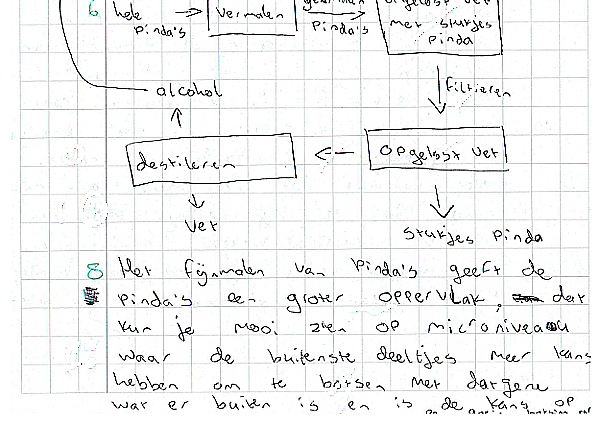 6 hele → vermalen → → opgelost vet
pinda's pinda's met stukjes
pinda
alcohol
filtreren
destileren ← opgelost vet
vet
stukjes pinda
8 Het fijnmalen van pinda's geeft de
pinda's een groter oppervlak, dat
kun je mooi zien op microniveau
waar de buitenste deeltjes meer kans
hebben om te botsen met datgene
wat er buiten is en is de kans op